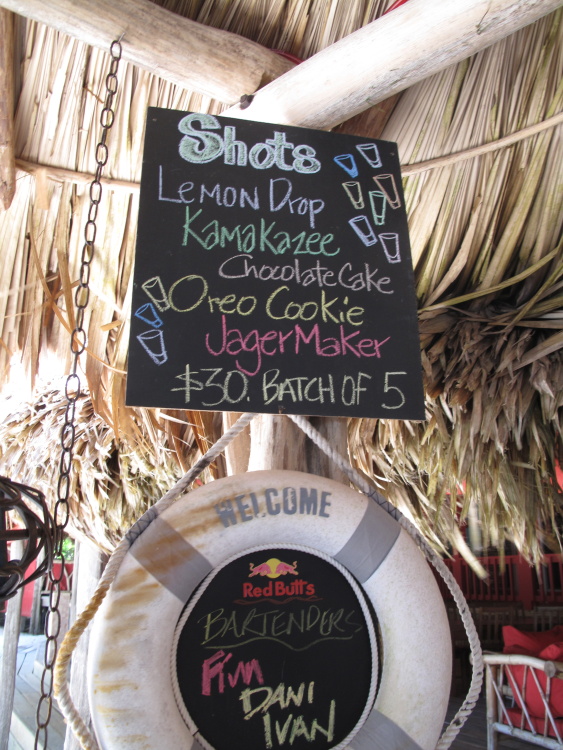 Shots
Lemon Drop
Kamakazee
Chocolate Cake
Oreo Cookie
Jager Maker
$30. Batch of 5
WELCOME
Red Butt's
BARTENDERS
Fim
DANI
IVAN